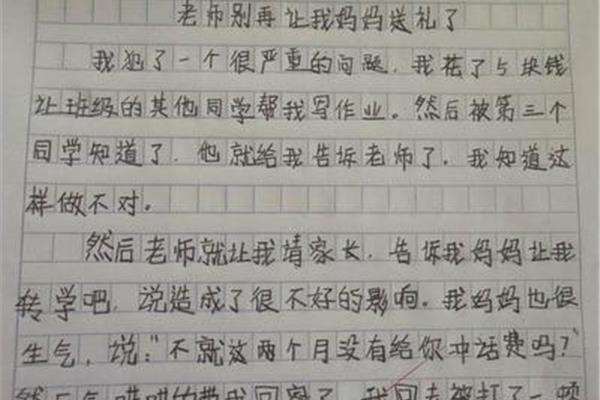 老师别再让我妈妈送礼了
我犯了一个很严重的问题,我花了5块钱
让班级的其他同学帮我写作业。然后被第三个
同学知道了,他就给我告诉老师了,我知道这
样做不对。
然后老师就让我请家长,告诉我妈妈让我
转学吧,说造成了很不好的影响。我妈妈也很
生气,说:“不就这两个月没有给你冲话费吗?”
然后气哄哄的带我回家了,我回去被打了一顿